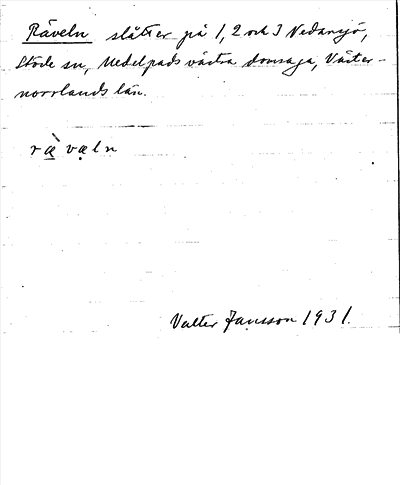 Räveln slåtter på 1, 2 och 3 Nedansjö,
Stöde sn, Medelpads västra domsaga, Väster-
norrlands län.
ræ̀væln
Valter Jansson 1931.